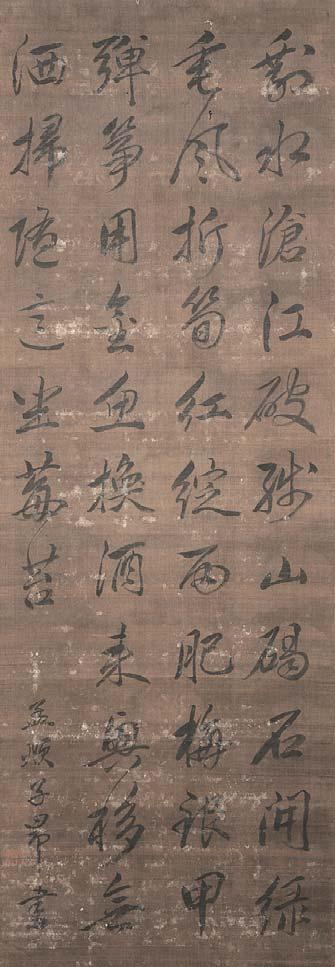 剩水滄江破殘山碣石開綠
垂風折筍紅綻雨肥梅銀甲
彈箏用金魚換酒來興移無
洒掃隨意坐莓苔
孟頫子昂書